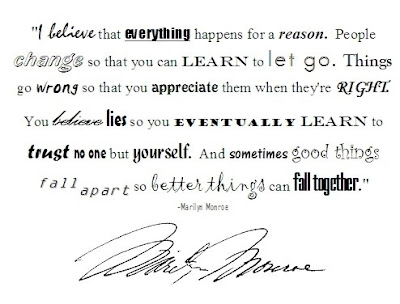 "I believe that everything happens for a reason. People
change so that you can LEARN to let go. Things
go wrong so that you appreciate them when they're RIGHT.
You believe lies so you EVENTUALLY LEARN to
trust no one but yourself. And sometimes good things
fall apart so better things can fall together."
-Marilyn Monroe
Marilyn Monroe